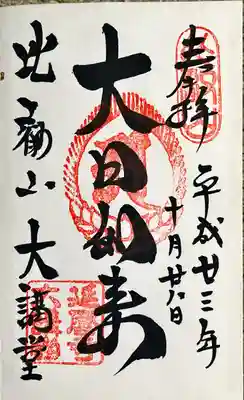 奉拝
平成廿三年
十月廿八日
大日如来
比叡山大講堂
延暦寺